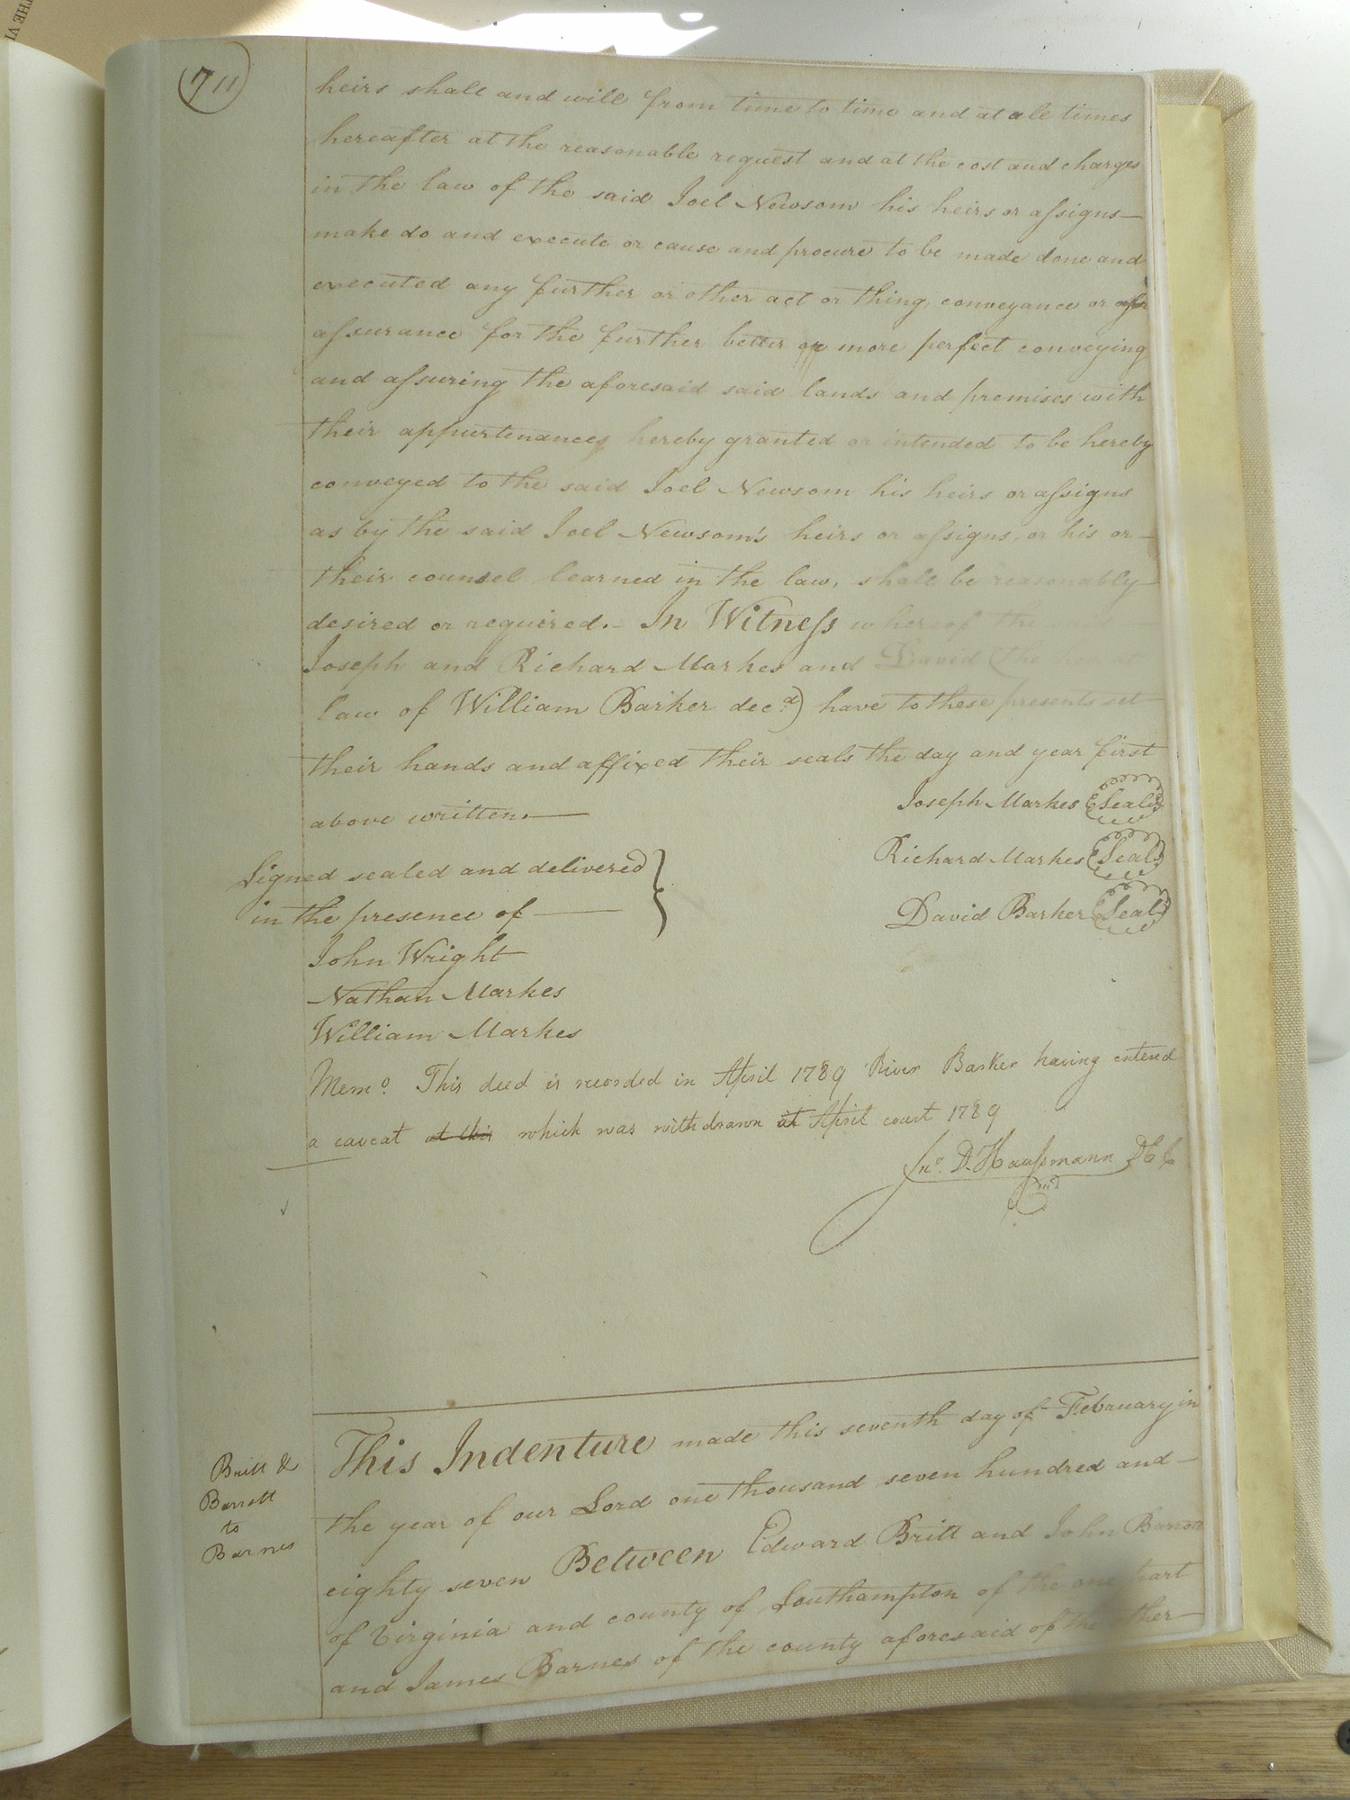 711
heirs shall and will from time to time and at all times
hereafter at the reasonable request and at the cost and charges
in the law of the said Joel Newsom his heirs or assigns—
make do and execute or cause and procure to be made done and
executed any further or other act or thing, conveyance or
assurance for the further better or more perfect conveying
and assuring the aforesaid said lands and premises with
their appurtenances hereby granted or intended to be hereby
conveyed to the said Joel Newsom his heirs or assigns
as by the said Joel Newsom's heirs or assigns, or his or—
their counsel learned in the law, shall be reasonably—
desired or required.— In Witness whereof the
Joseph and Richard Markes and David (the
law of William Barker decd) have to these presents set
their hands and affixed their seals the day and year first
above written.—
Joseph Markes Seal
Richard Markes Seal
David Barker Seal
Signed sealed and delivered
in the presence of —
John Wright
Nathan Markes
William Markes
Memo. This deed is recorded in April 1789 River Barker having entered
a caveat at this which was withdrawn at April court 1789
Jno. D. Haussmann DCC
Britt &
Barrott
to
Barnes
This Indenture made this seventh day of February in
the year of our Lord one thousand seven hundred and—
eighty seven Between Edward Britt and John
of Virginia and county of Southampton of the one part
and James Barnes of the county aforesaid of the other—